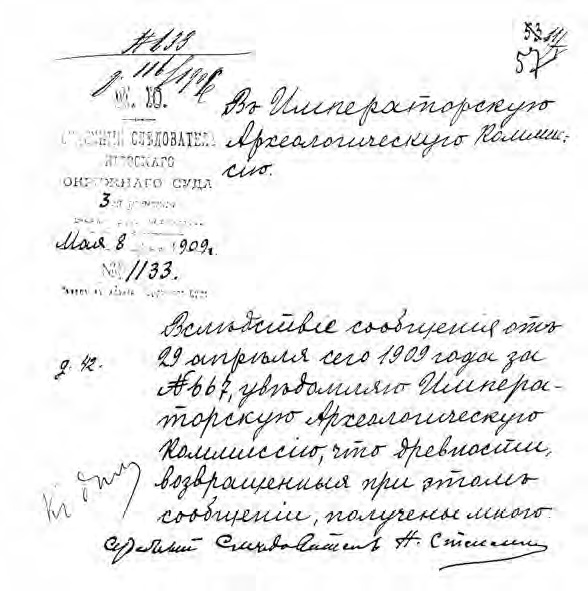 № 633
д. 116/1908
53
57
М. Ю.
СУДЕБНЫЙ СЛѢДОВАТЕЛЬ
ОКРУЖНАГО СУДА
3
Мая 8 1909 г.
№ 1133.
Въ Императорскую
Археологическую Коммис-
сію.
д. 42.
Вслѣдствіе сообщенія отъ
29 апрѣля сего 1909 года за
№ 667, увѣдомляю Импера-
торскую Археологическую
Коммиссію, что древности,
возвращенныя при этомъ
сообщеніи, получены мною.
Къ дѣлу
Судебный Слѣдователь Н.